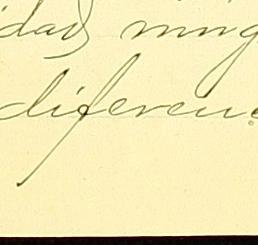 iday ning
diferenc